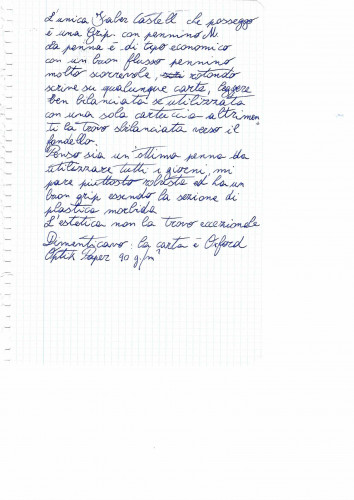 L'unica Faber Castell che posseggo
è una Grip con pennino M.
La penna è di tipo economico
con un buon flusso pennino
molto scorrevole, rotondo
scrive su qualunque carta, leggera
ben bilanciata se utilizzata
con una sola cartuccia altrimen
ti la trovo sbilanciata verso il
fondello.
Penso sia un'ottima penna da
utilizzare tutti i giorni, mi
pare piuttosto robusta ed ha un
buon grip essendo la sezione di
plastica morbida
L'estetica non la trovo eccezionale
Dimenticavo: la carta è Oxford
Optik Paper 90 g/m²